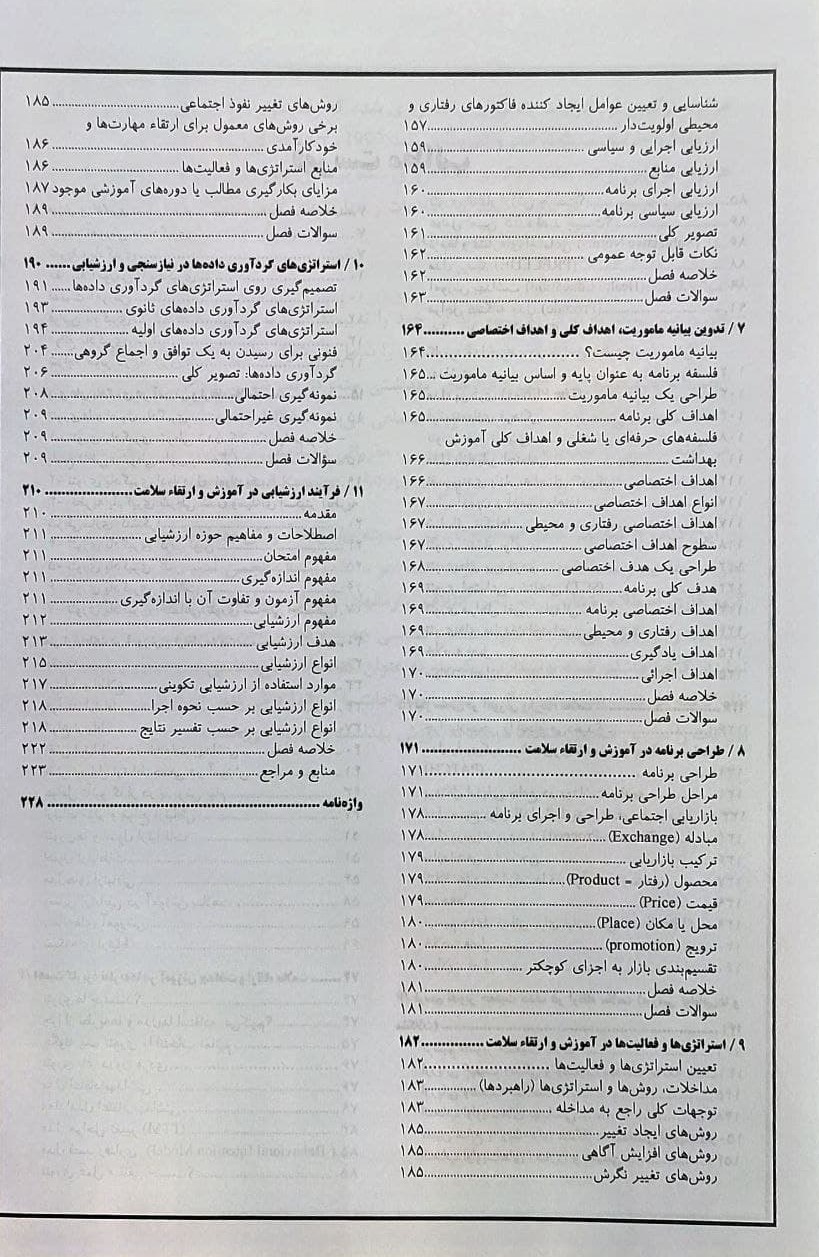 شناسایی و تعیین عوامل ایجاد کننده فاکتورهای رفتاری و
محیطی اولویت‌دار................۱۵۷
ارزیابی اجرایی و سیاسی................۱۵۹
ارزیابی منابع................۱۵۹
ارزیابی اجرای برنامه................۱۶۰
ارزیابی سیاسی برنامه................۱۶۰
تصویر کلی................۱۶۱
نکات قابل توجه عمومی................۱۶۲
خلاصه فصل................۱۶۲
سوالات فصل................۱۶۳
۷ / تدوین بیانیه ماموریت، اهداف کلی و اهداف اختصاصی..........۱۶۴
بیانیه ماموریت چیست؟................۱۶۴
فلسفه برنامه به عنوان پایه و اساس بیانیه ماموریت ...۱۶۵
طراحی یک بیانیه ماموریت................۱۶۵
اهداف کلی برنامه................۱۶۵
فلسفه‌های حرفه‌ای یا شغلی و اهداف کلی آموزش
بهداشت................۱۶۶
اهداف اختصاصی................۱۶۶
انواع اهداف اختصاصی................۱۶۷
اهداف اختصاصی رفتاری و محیطی................۱۶۷
سطوح اهداف اختصاصی................۱۶۷
طراحی یک هدف اختصاصی................۱۶۸
هدف کلی برنامه................۱۶۹
اهداف اختصاصی برنامه................۱۶۹
اهداف رفتاری و محیطی................۱۶۹
اهداف یادگیری................۱۶۹
اهداف اجرائی................۱۷۰
خلاصه فصل................۱۷۰
سوالات فصل................۱۷۰
۸ / طراحی برنامه در آموزش و ارتقاء سلامت................۱۷۱
طراحی برنامه................۱۷۱
مراحل طراحی برنامه................۱۷۱
بازاریابی اجتماعی، طراحی و اجرای برنامه................۱۷۸
مبادله (Exchange)................۱۷۸
ترکیب بازاریابی................۱۷۹
محصول (رفتار = Product)................۱۷۹
قیمت (Price)................۱۷۹
محل یا مکان (Place)................۱۸۰
ترویج (promotion)................۱۸۰
تقسیم‌بندی بازار به اجزای کوچکتر................۱۸۰
خلاصه فصل................۱۸۱
سوالات فصل................۱۸۱
۹ / استراتژی‌ها و فعالیت‌ها در آموزش و ارتقاء سلامت................۱۸۲
تعیین استراتژی‌ها و فعالیت‌ها................۱۸۲
مداخلات، روش‌ها و استراتژی‌ها (راهبردها)................۱۸۳
توجهات کلی راجع به مداخله................۱۸۳
روش‌های ایجاد تغییر................۱۸۵
روش‌های افزایش آگاهی................۱۸۵
روش‌های تغییر نگرش................۱۸۵
روش‌های تغییر نفوذ اجتماعی................۱۸۵
برخی روش‌های معمول برای ارتقاء مهارت‌ها و
خودکارآمدی................۱۸۶
منابع استراتژی‌ها و فعالیت‌ها................۱۸۶
مزایای بکارگیری مطالب یا دوره‌های آموزشی موجود ۱۸۷
خلاصه فصل................۱۸۹
سوالات فصل................۱۸۹
۱۰ / استراتژی‌های گردآوری داده‌ها در نیازسنجی و ارزشیابی......۱۹۰
تصمیم‌گیری روی استراتژی‌های گردآوری داده‌ها.....۱۹۱
استراتژی‌های گردآوری داده‌های ثانوی................۱۹۳
استراتژی‌های گردآوری داده‌های اولیه................۱۹۴
فنونی برای رسیدن به یک توافق و اجماع گروهی.....۲۰۴
گردآوری داده‌ها: تصویر کلی................۲۰۶
نمونه‌گیری احتمالی................۲۰۸
نمونه‌گیری غیراحتمالی................۲۰۹
خلاصه فصل................۲۰۹
سؤالات فصل................۲۰۹
۱۱ / فرآیند ارزشیابی در آموزش و ارتقاء سلامت................۲۱۰
مقدمه................۲۱۰
اصطلاحات و مفاهیم حوزه ارزشیابی................۲۱۱
مفهوم امتحان................۲۱۱
مفهوم اندازه‌گیری................۲۱۱
مفهوم آزمون و تفاوت آن با اندازه‌گیری................۲۱۱
مفهوم ارزشیابی................۲۱۲
هدف ارزشیابی................۲۱۳
انواع ارزشیابی................۲۱۵
موارد استفاده از ارزشیابی تکوینی................۲۱۷
انواع ارزشیابی بر حسب نحوه اجرا................۲۱۸
انواع ارزشیابی بر حسب تفسیر نتایج................۲۱۸
خلاصه فصل................۲۲۲
منابع و مراجع................۲۲۳
واژه‌نامه................۲۲۸